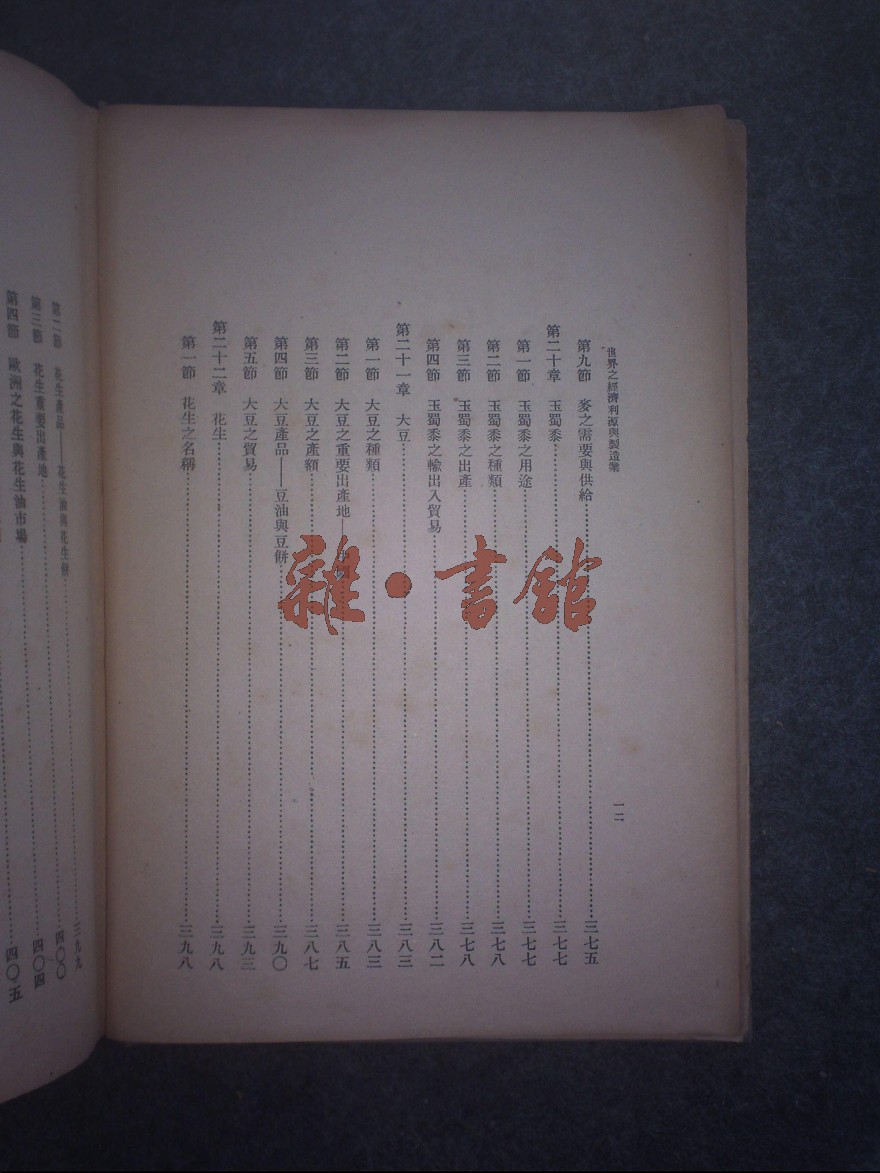 世界之經濟利源與製造業
一二
第九節　麥之需要與供給……三七五
第二十章　玉蜀黍……三七七
第一節　玉蜀黍之用途……三七七
第二節　玉蜀黍之種類……三七八
第三節　玉蜀黍之出產……三七八
第四節　玉蜀黍之輸出入貿易……三八二
第二十一章　大豆……三八三
第一節　大豆之種類……三八三
第二節　大豆之重要出產地——……三八五
第三節　大豆之產額……三八七
第四節　大豆產品——豆油與豆餅……三九〇
第五節　大豆之貿易……三九三
第二十二章　花生……三九八
第一節　花生之名稱……三九八
第二節　花生產品——花生油與花生餅……三九九
第三節　花生重要出產地……四〇〇
第四節　歐洲之花生與花生油市場……四〇四
四〇五
雜·書館